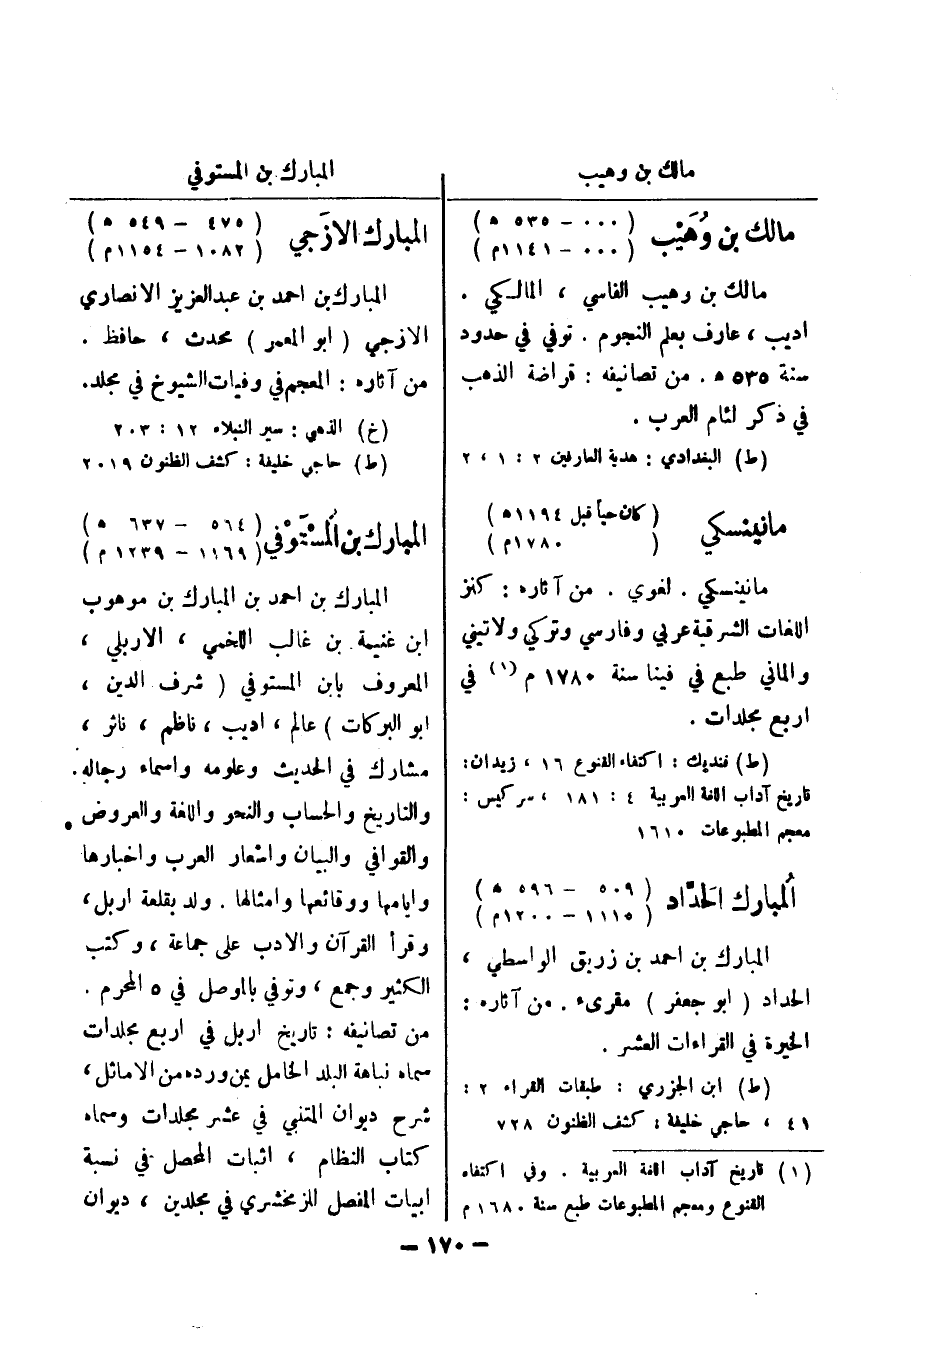 مالك بن وهيب
مالك بن وُهَيْب
( ٠٠٠ – ٥٣٥ ه )
( ٠٠٠ – ١١٤١م )
مالك بن وهيب الفاسي ، المالكي .
اديب ، عارف بعلم النجوم . توفي في حدود
سنة ٥٣٥ ه . من تصانيفه : قراضة الذهب
في ذكر لئام العرب .
(ط) البغدادي : هدية العارفين ٢ : ١ ، ٢
مانينسكي
( كان حياً قبل ١١٩٤ه )
( ١٧٨٠م )
مانينسكي . لغوي . من آثاره : كنز
اللغات الشرقية عربي وفارسي وتركي ولاتيني
والماني طبع في فينا سنة ١٧٨٠ م (١) في
اربع مجلدات .
(ط) فنديك : اكتفاء القنوع ١٦ ، زيدان:
تاريخ آداب اللغة العربية ٤ : ١٨١ ، سركيس :
معجم المطبوعات ١٦١٠
المُبارك الحدّاد
( ٥٠٩ – ٥٩٦ ه )
( ١١١٥ – ١٢٠٠م )
المبارك بن احمد بن زريق الواسطي ،
الحداد ( ابو جعفر ) مقرىء . من آثاره :
الخيرة في القراءات العشر .
(ط) ابن الجزري : طبقات القراء ٢ :
٤١ ، حاجي خليفة : كشف الظنون ٧٢٨
(١) تاريخ آداب اللغة العربية . وفي اكتفاء
القنوع ومعجم المطبوعات طبع سنة ١٦٨٠ م
المبارك بن المستوفي
المبارك الازَجي
( ٤٧٥ – ٥٤٩ ه )
( ١٠٨٢ – ١١٥٤م )
المبارك بن احمد بن عبدالعزيز الانصاري
الازجي ( ابو المعمر ) محدث ، حافظ .
من آثاره : المعجم في وفيات الشيوخ في مجلد.
(خ) الذهبي : سير النبلاء ١٢ : ٢٠٣
(ط) حاجي خليفة : كشف الظنون ٢٠١٩
المبارك بن المُسْتَوْفي
( ٥٦٤ – ٦٣٧ ه )
( ١١٦٩ – ١٢٣٩ م )
المبارك بن احمد بن المبارك بن موهوب
ابن غنيمة بن غالب اللخمي ، الاربلي ،
المعروف بابن المستوفي ( شرف الدين ،
ابو البركات ) عالم ، اديب ، ناظم ، ناثر ،
مشارك في الحديث وعلومه واسماء رجاله.
والتاريخ والحساب والنحو واللغة والعروض
والقوافي والبيان واشعار العرب واخبارها
وايامها ووقائعها وامثالها . ولد بقلعة اربل ،
وقرأ القرآن والادب على جماعة ، وكتب
الكثير وجمع ، وتوفي بالموصل في ٥ المحرم .
من تصانيفه : تاريخ اربل في اربع مجلدات
سماه نباهة البلد الخامل بمن ورده من الاماثل ،
شرح ديوان المتنبي في عشر مجلدات وسماه
كتاب النظام ، اثبات المحصل في نسبة
ابيات المفصل للزمخشري في مجلدين ، ديوان
– ١٧٠ –